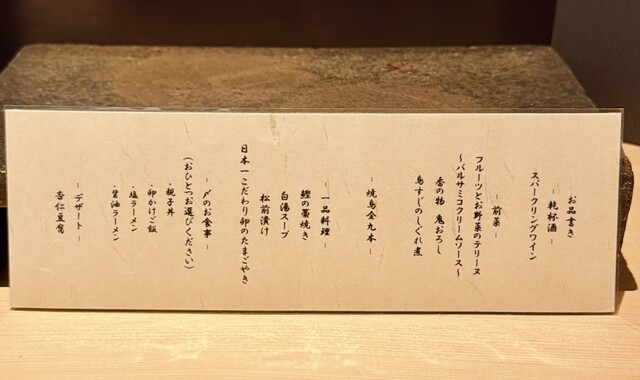 お品書き
－ 乾杯酒 －
スパークリングワイン
－ 前菜 －
フルーツとお野菜のテリーヌ
～バルサミコクリームソース～
香の物 鬼おろし
鳥すじのしぐれ煮
－ 焼鳥全九本 －
－ 一品料理 －
鰹の藁焼き
白湯スープ
松前漬け
日本一こだわり卵のたまごやき
－ 〆のお食事 －
(おひとつお選びください)
・親子丼
・卵かけご飯
・塩ラーメン
・醤油ラーメン
－ デザート －
杏仁豆腐